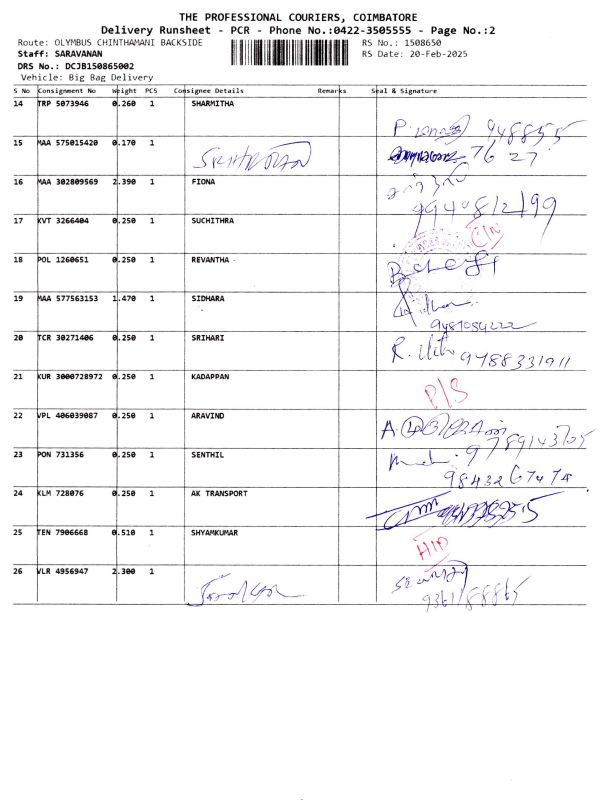 THE PROFESSIONAL COURIERS, COIMBATORE
Delivery Runsheet - PCR - Phone No.:0422-3505555 - Page No.:2
Route: OLYMBUS CHINTHAMANI BACKSIDE RS No.: 1508650
Staff: SARAVANAN RS Date: 20-Feb-2025
DRS No.: DCJB150865002
Vehicle: Big Bag Delivery
S No Consignment No Weight PCS Consignee Details Remarks Seal & Signature
14 TRP 5073946 0.260 1 SHARMITHA
948855
15 MAA 575015420 0.170 1
76 27
16 MAA 302809569 2.390 1 FIONA
9940812199
17 KVT 3266404 0.250 1 SUCHITHRA
18 POL 1260651 0.250 1 REVANTHA
19 MAA 577563153 1.470 1 SIDHARA
20 TCR 30271406 0.250 1 SRIHARI
9488331911
21 KUR 3000728972 0.250 1 KADAPPAN
P/S
22 VPL 406039087 0.250 1 ARAVIND
23 PON 731356 0.250 1 SENTHIL
24 KLM 728076 0.250 1 AK TRANSPORT
25 TEN 7906668 0.510 1 SHYAMKUMAR
26 VLR 4956947 2.300 1